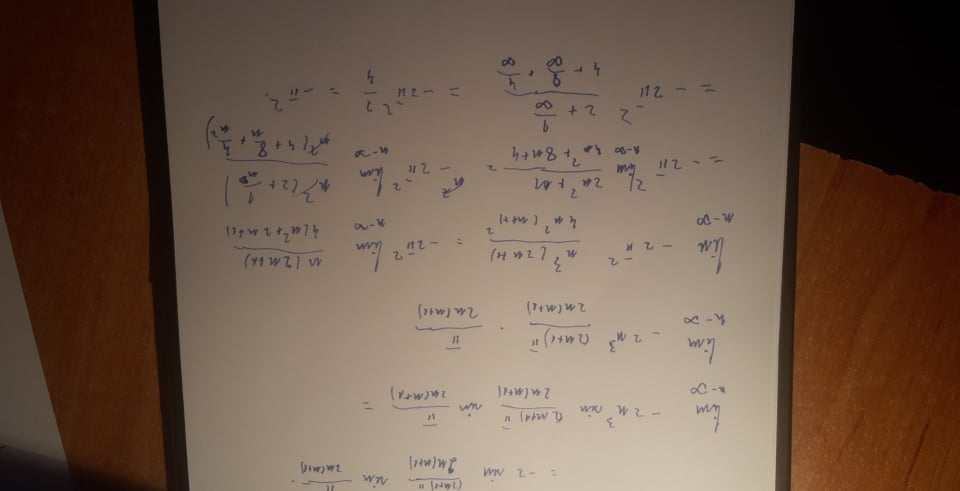 = -2 sin (2n+1)π/2n(n+1) sin π/2n(n+1).
lim n→∞ -2n³ sin (2n+1)π/2n(n+1) sin π/2n(n+1) =
lim n→∞ -2n³ (2n+1)π/2n(n+1) · π/2n(n+1)
lim n→∞ -2π² n³(2n+1)/4n²(n+1)² = -2π² lim n→∞ n(2n+1)/4(n²+2n+1)
= -2π² lim n→∞ 2n²+n/4n²+8n+4 = -2π² lim n→∞ n²(2+1/n)/n²(4+8/n+4/n²)
= -2π² 2+1/∞/4+8/∞+4/∞ = -2π² 2/4 = -π².